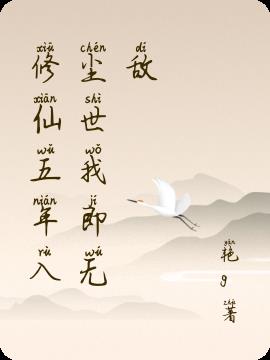 xiū
修
xiān
仙
wǔ
五
nián
年
rù
入
chén
尘
shì
世
wǒ
我
jí
即
wú
无
dí
敌
yàn
艳
g
zhù
著